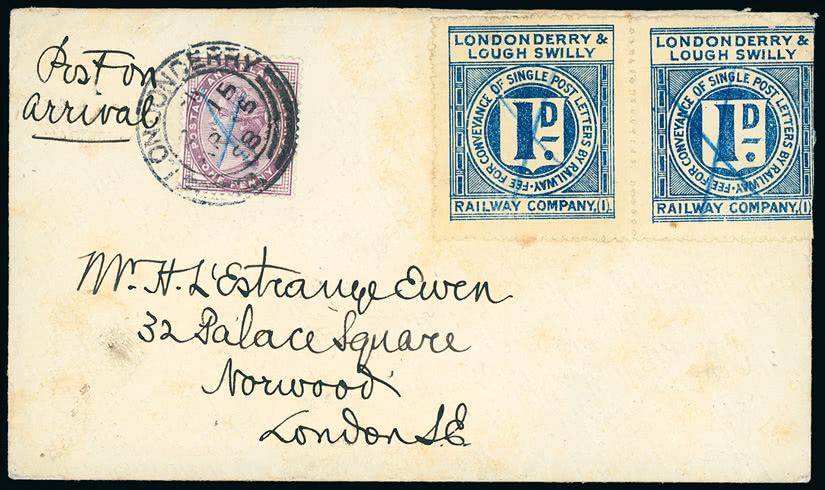 Post on
arrival
LONDONDERRY
POSTAGE AND
ONE PENNY
LONDONDERRY &
LOUGH SWILLY
FEE FOR CONVEYANCE OF SINGLE POST LETTERS BY RAILWAY
1D.
RAILWAY COMPANY,(1).
LONDONDERRY &
LOUGH SWILLY
FEE FOR CONVEYANCE OF SINGLE POST LETTERS BY RAILWAY
1D.
RAILWAY COMPANY,(1)
Mr. H. L'Estrange Ewen
32 Palace Square
Norwood
London S.E.